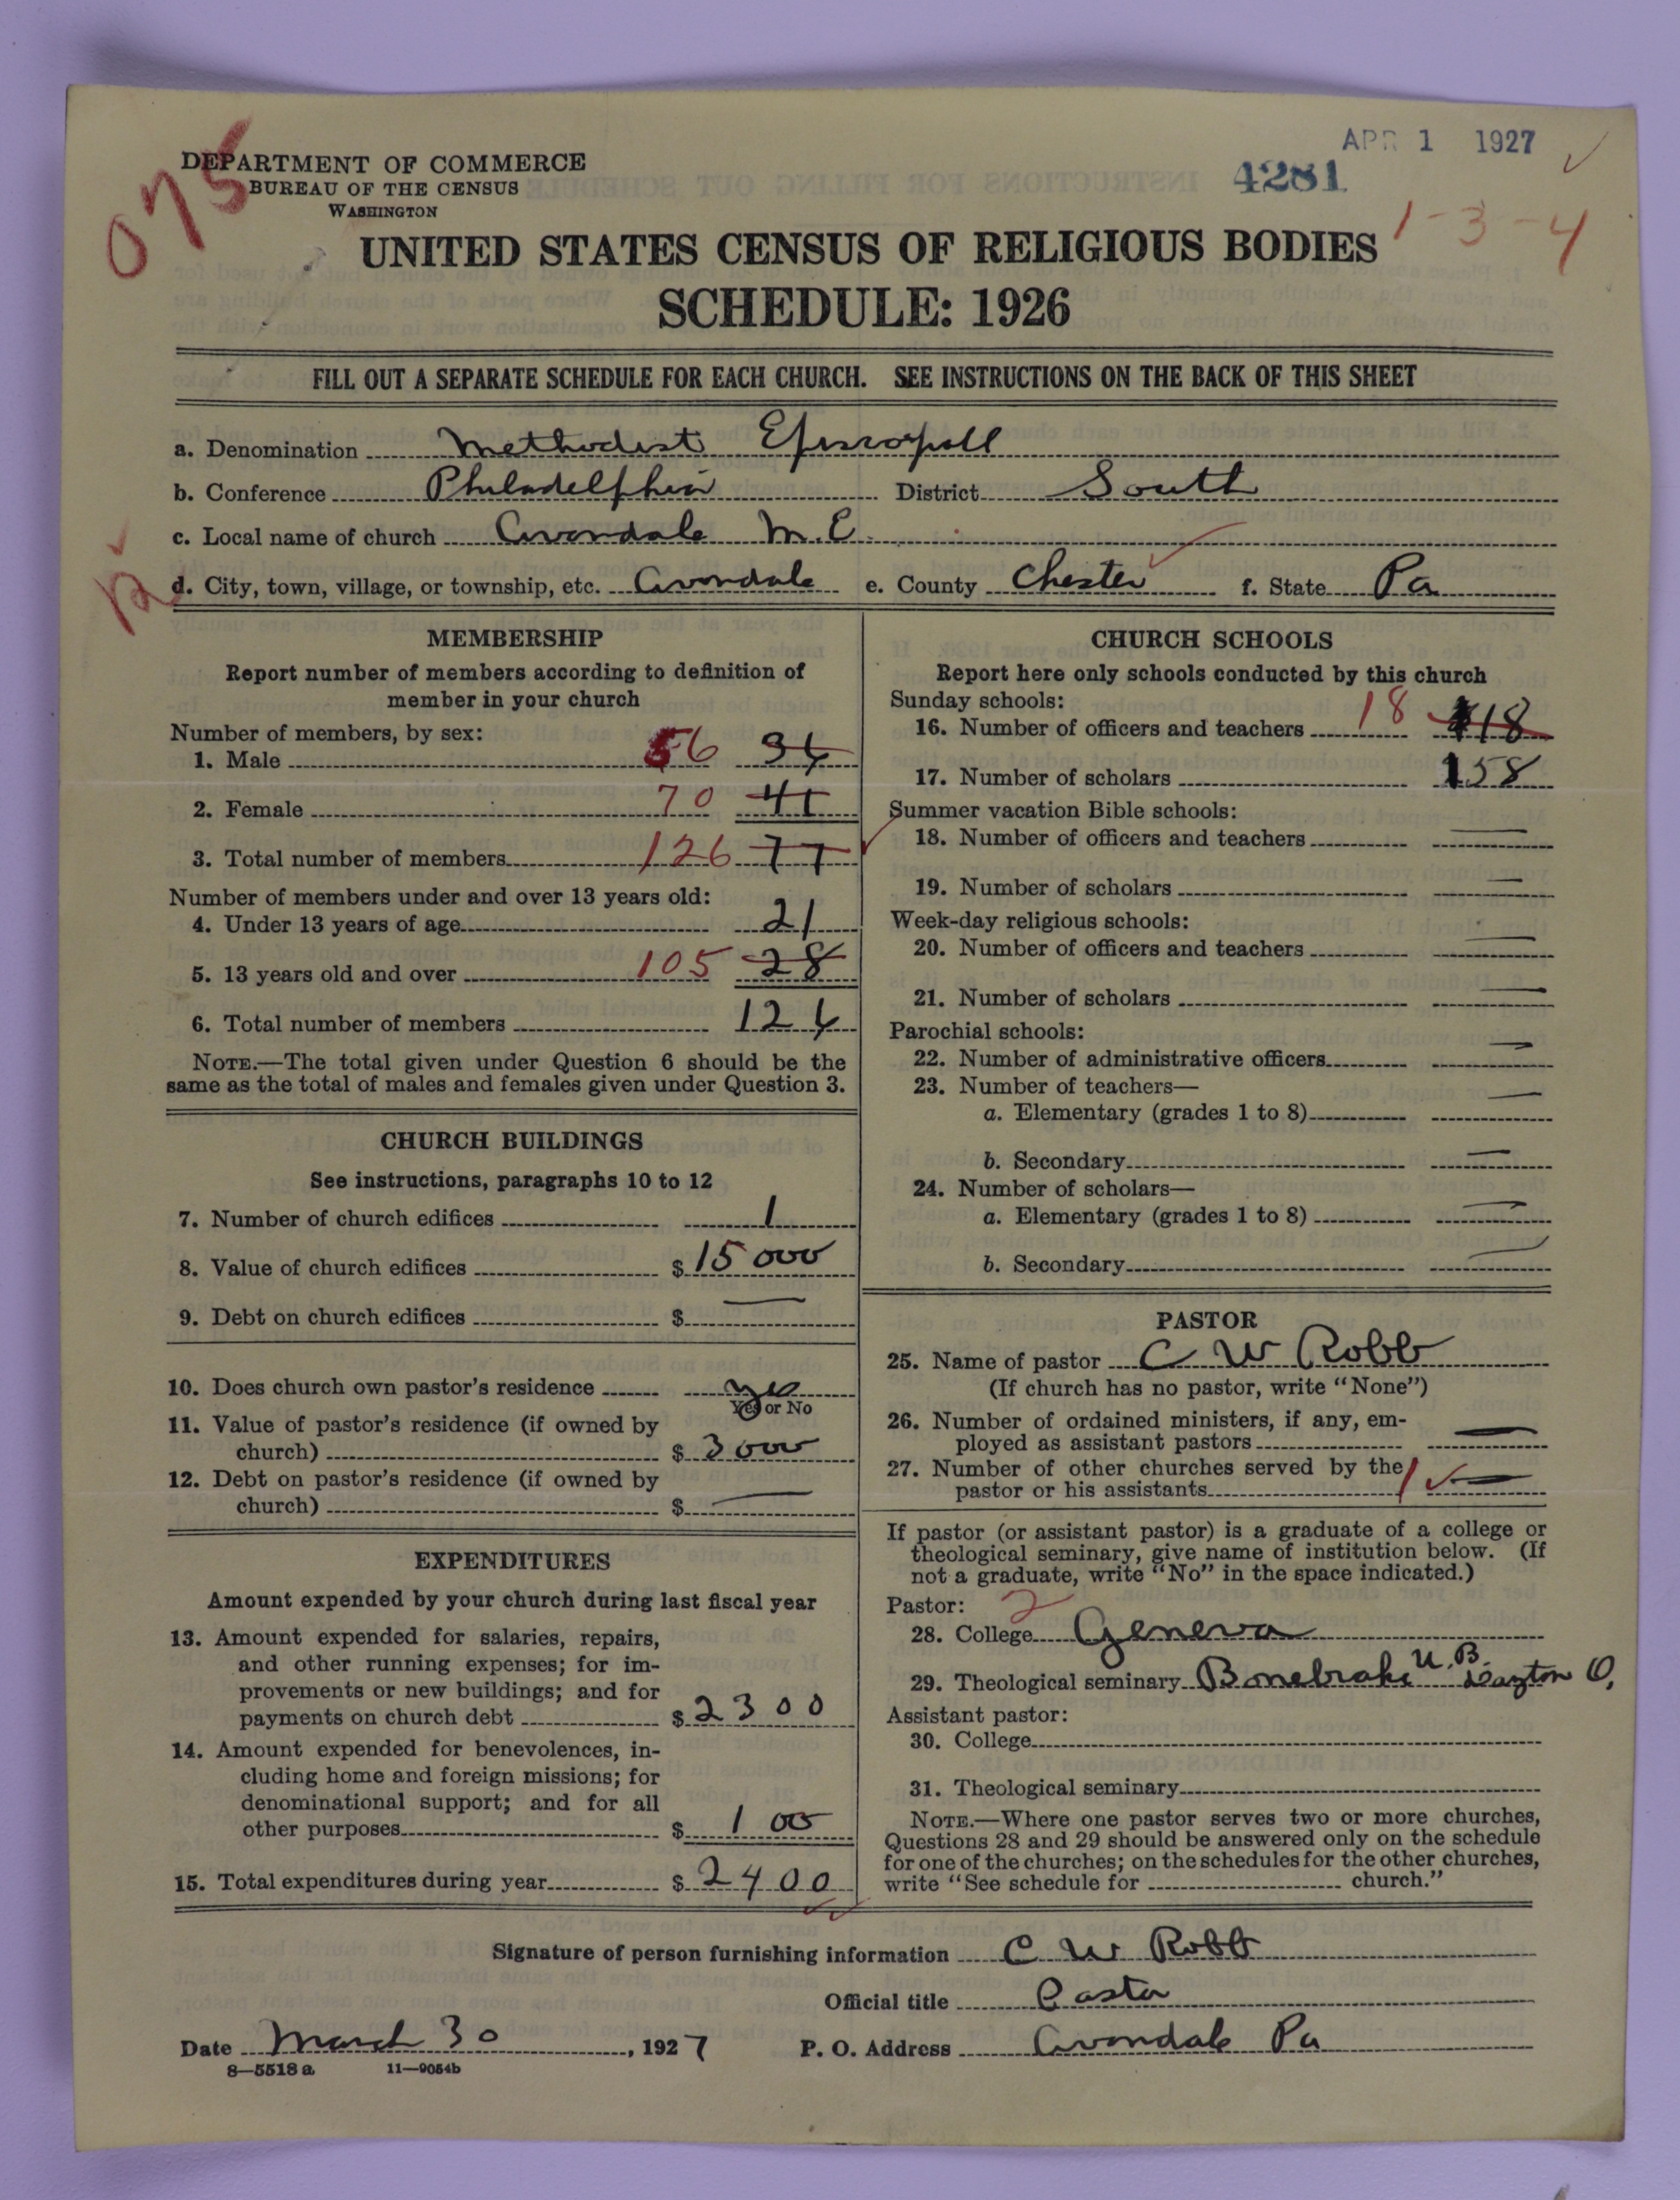 APR 1 1927
4281
075
DEPARTMENT OF COMMERCE
BUREAU OF THE CENSUS
WASHINGTON
1-3-4
UNITED STATES CENSUS OF RELIGIOUS BODIES
SCHEDULE: 1926
FILL OUT A SEPARATE SCHEDULE FOR EACH CHURCH. SEE INSTRUCTIONS ON THE BACK OF THIS SHEET
a. Denomination Methodist Episcopall
b. Conference Philadelphia District South
c. Local name of church Avondale M.E.
d. City, town, village, or township, etc. Avondale e. County Chester f. State Pa
MEMBERSHIP
Report number of members according to definition of
member in your church
Number of members, by sex:
1. Male 56 36
2. Female 70 41
3. Total number of members 126 77
Number of members under and over 13 years old:
4. Under 13 years of age 21
5. 13 years old and over 105 28
6. Total number of members 126
NOTE.—The total given under Question 6 should be the
same as the total of males and females given under Question 3.
CHURCH BUILDINGS
See instructions, paragraphs 10 to 12
7. Number of church edifices 1
8. Value of church edifices $ 15000
9. Debt on church edifices $ —
10. Does church own pastor's residence yes
Yes or No
11. Value of pastor's residence (if owned by
church) $ 3000
12. Debt on pastor's residence (if owned by
church) $ —
EXPENDITURES
Amount expended by your church during last fiscal year
13. Amount expended for salaries, repairs,
and other running expenses; for im-
provements or new buildings; and for
payments on church debt $ 2300
14. Amount expended for benevolences, in-
cluding home and foreign missions; for
denominational support; and for all
other purposes $ 100
15. Total expenditures during year $ 2400
CHURCH SCHOOLS
Report here only schools conducted by this church
Sunday schools:
16. Number of officers and teachers 18 18
17. Number of scholars 158
Summer vacation Bible schools:
18. Number of officers and teachers —
19. Number of scholars —
Week-day religious schools:
20. Number of officers and teachers —
21. Number of scholars —
Parochial schools:
22. Number of administrative officers —
23. Number of teachers—
a. Elementary (grades 1 to 8) —
b. Secondary —
24. Number of scholars—
a. Elementary (grades 1 to 8) —
b. Secondary —
PASTOR
25. Name of pastor C W Robb
(If church has no pastor, write "None")
26. Number of ordained ministers, if any, em-
ployed as assistant pastors —
27. Number of other churches served by the
pastor or his assistants 1 —
If pastor (or assistant pastor) is a graduate of a college or
theological seminary, give name of institution below. (If
not a graduate, write "No" in the space indicated.)
Pastor: 2
28. College Geneva
29. Theological seminary Bonebrake U.B. Dayton O.
Assistant pastor:
30. College
31. Theological seminary
NOTE.—Where one pastor serves two or more churches,
Questions 28 and 29 should be answered only on the schedule
for one of the churches; on the schedules for the other churches,
write "See schedule for church."
Signature of person furnishing information C W Robb
Official title Pastor
Date March 30, 1927 P. O. Address Avondale Pa
8—5518 a 11—9054b